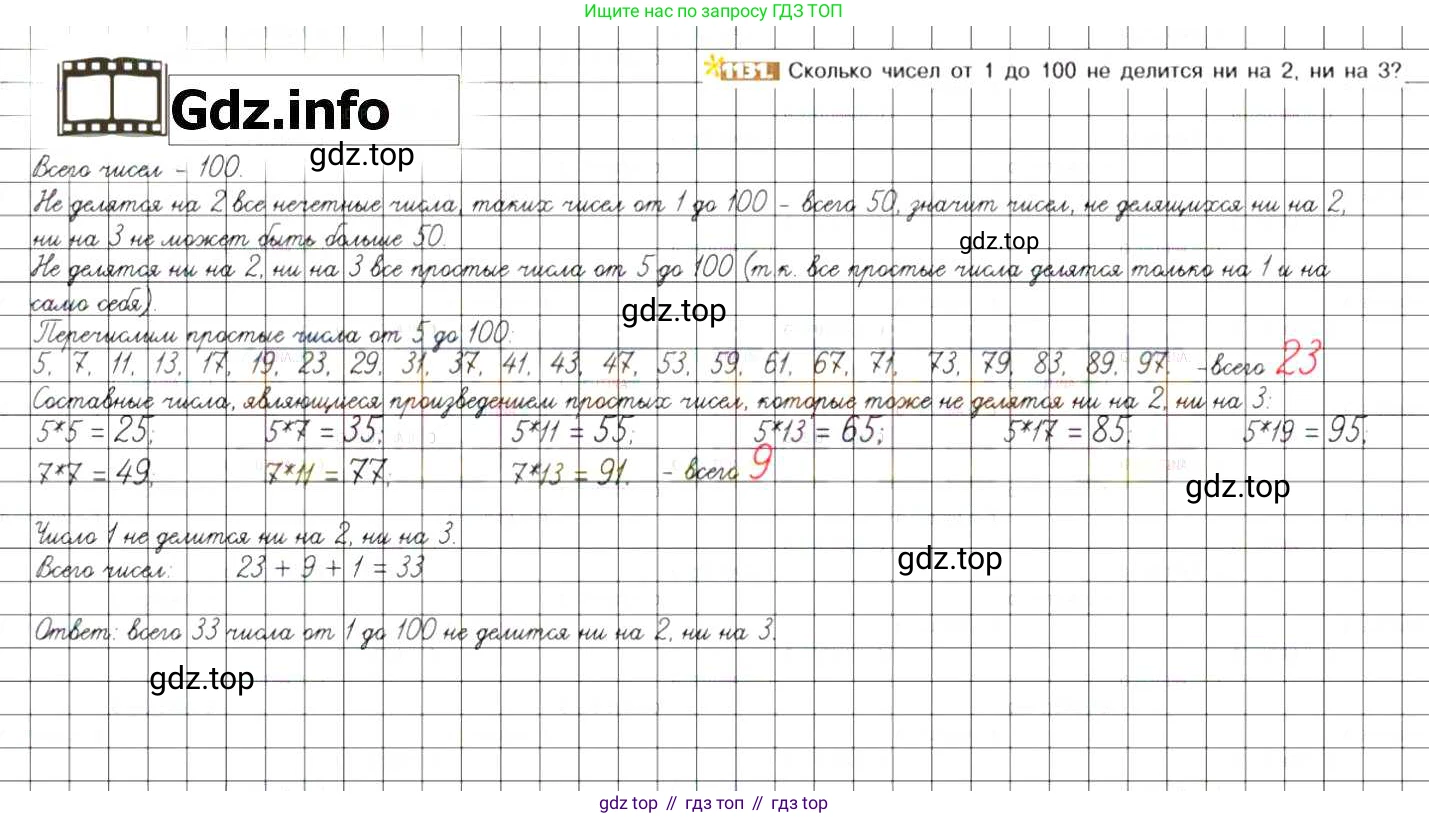 Ищите нас по запросу ГДЗ ТОП
1131. Сколько чисел от 1 до 100 не делится ни на 2, ни на 3?
Gdz.info
gdz.top
Всего чисел – 100.
Не делятся на 2 все нечетные числа, таких чисел от 1 до 100 – всего 50, значит чисел, не делящихся ни на 2,
ни на 3 не может быть больше 50.
gdz.top
Не делятся ни на 2, ни на 3 все простые числа от 5 до 100 (т.к. все простые числа делятся только на 1 и на
само себя).
gdz.top
Перечислим простые числа от 5 до 100:
5, 7, 11, 13, 17, 19, 23, 29, 31, 37, 41, 43, 47, 53, 59, 61, 67, 71, 73, 79, 83, 89, 97. – всего 23
Составные числа, являющиеся произведением простых чисел, которые тоже не делятся ни на 2, ни на 3:
5*5 = 25; 5*7 = 35; 5*11 = 55; 5*13 = 65; 5*17 = 85; 5*19 = 95;
7*7 = 49; 7*11 = 77; 7*13 = 91. – всего 9
gdz.top
Число 1 не делится ни на 2, ни на 3.
gdz.top
Всего чисел: 23 + 9 + 1 = 33
Ответ: всего 33 числа от 1 до 100 не делится ни на 2, ни на 3.
gdz.top
gdz top // гдз топ // gdz top